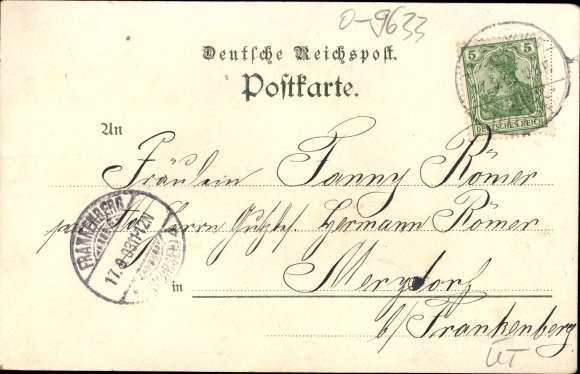 0-9633
Deutsche Reichspost.
Postkarte.
5 5
DEUTSCHES REICH
An
Fräulein Fanny Römer
Herrn Gutsbes. Hermann Römer
FRANKENBERG
17.9.03 11-12N
in Merzdorf
b/Frankenberg